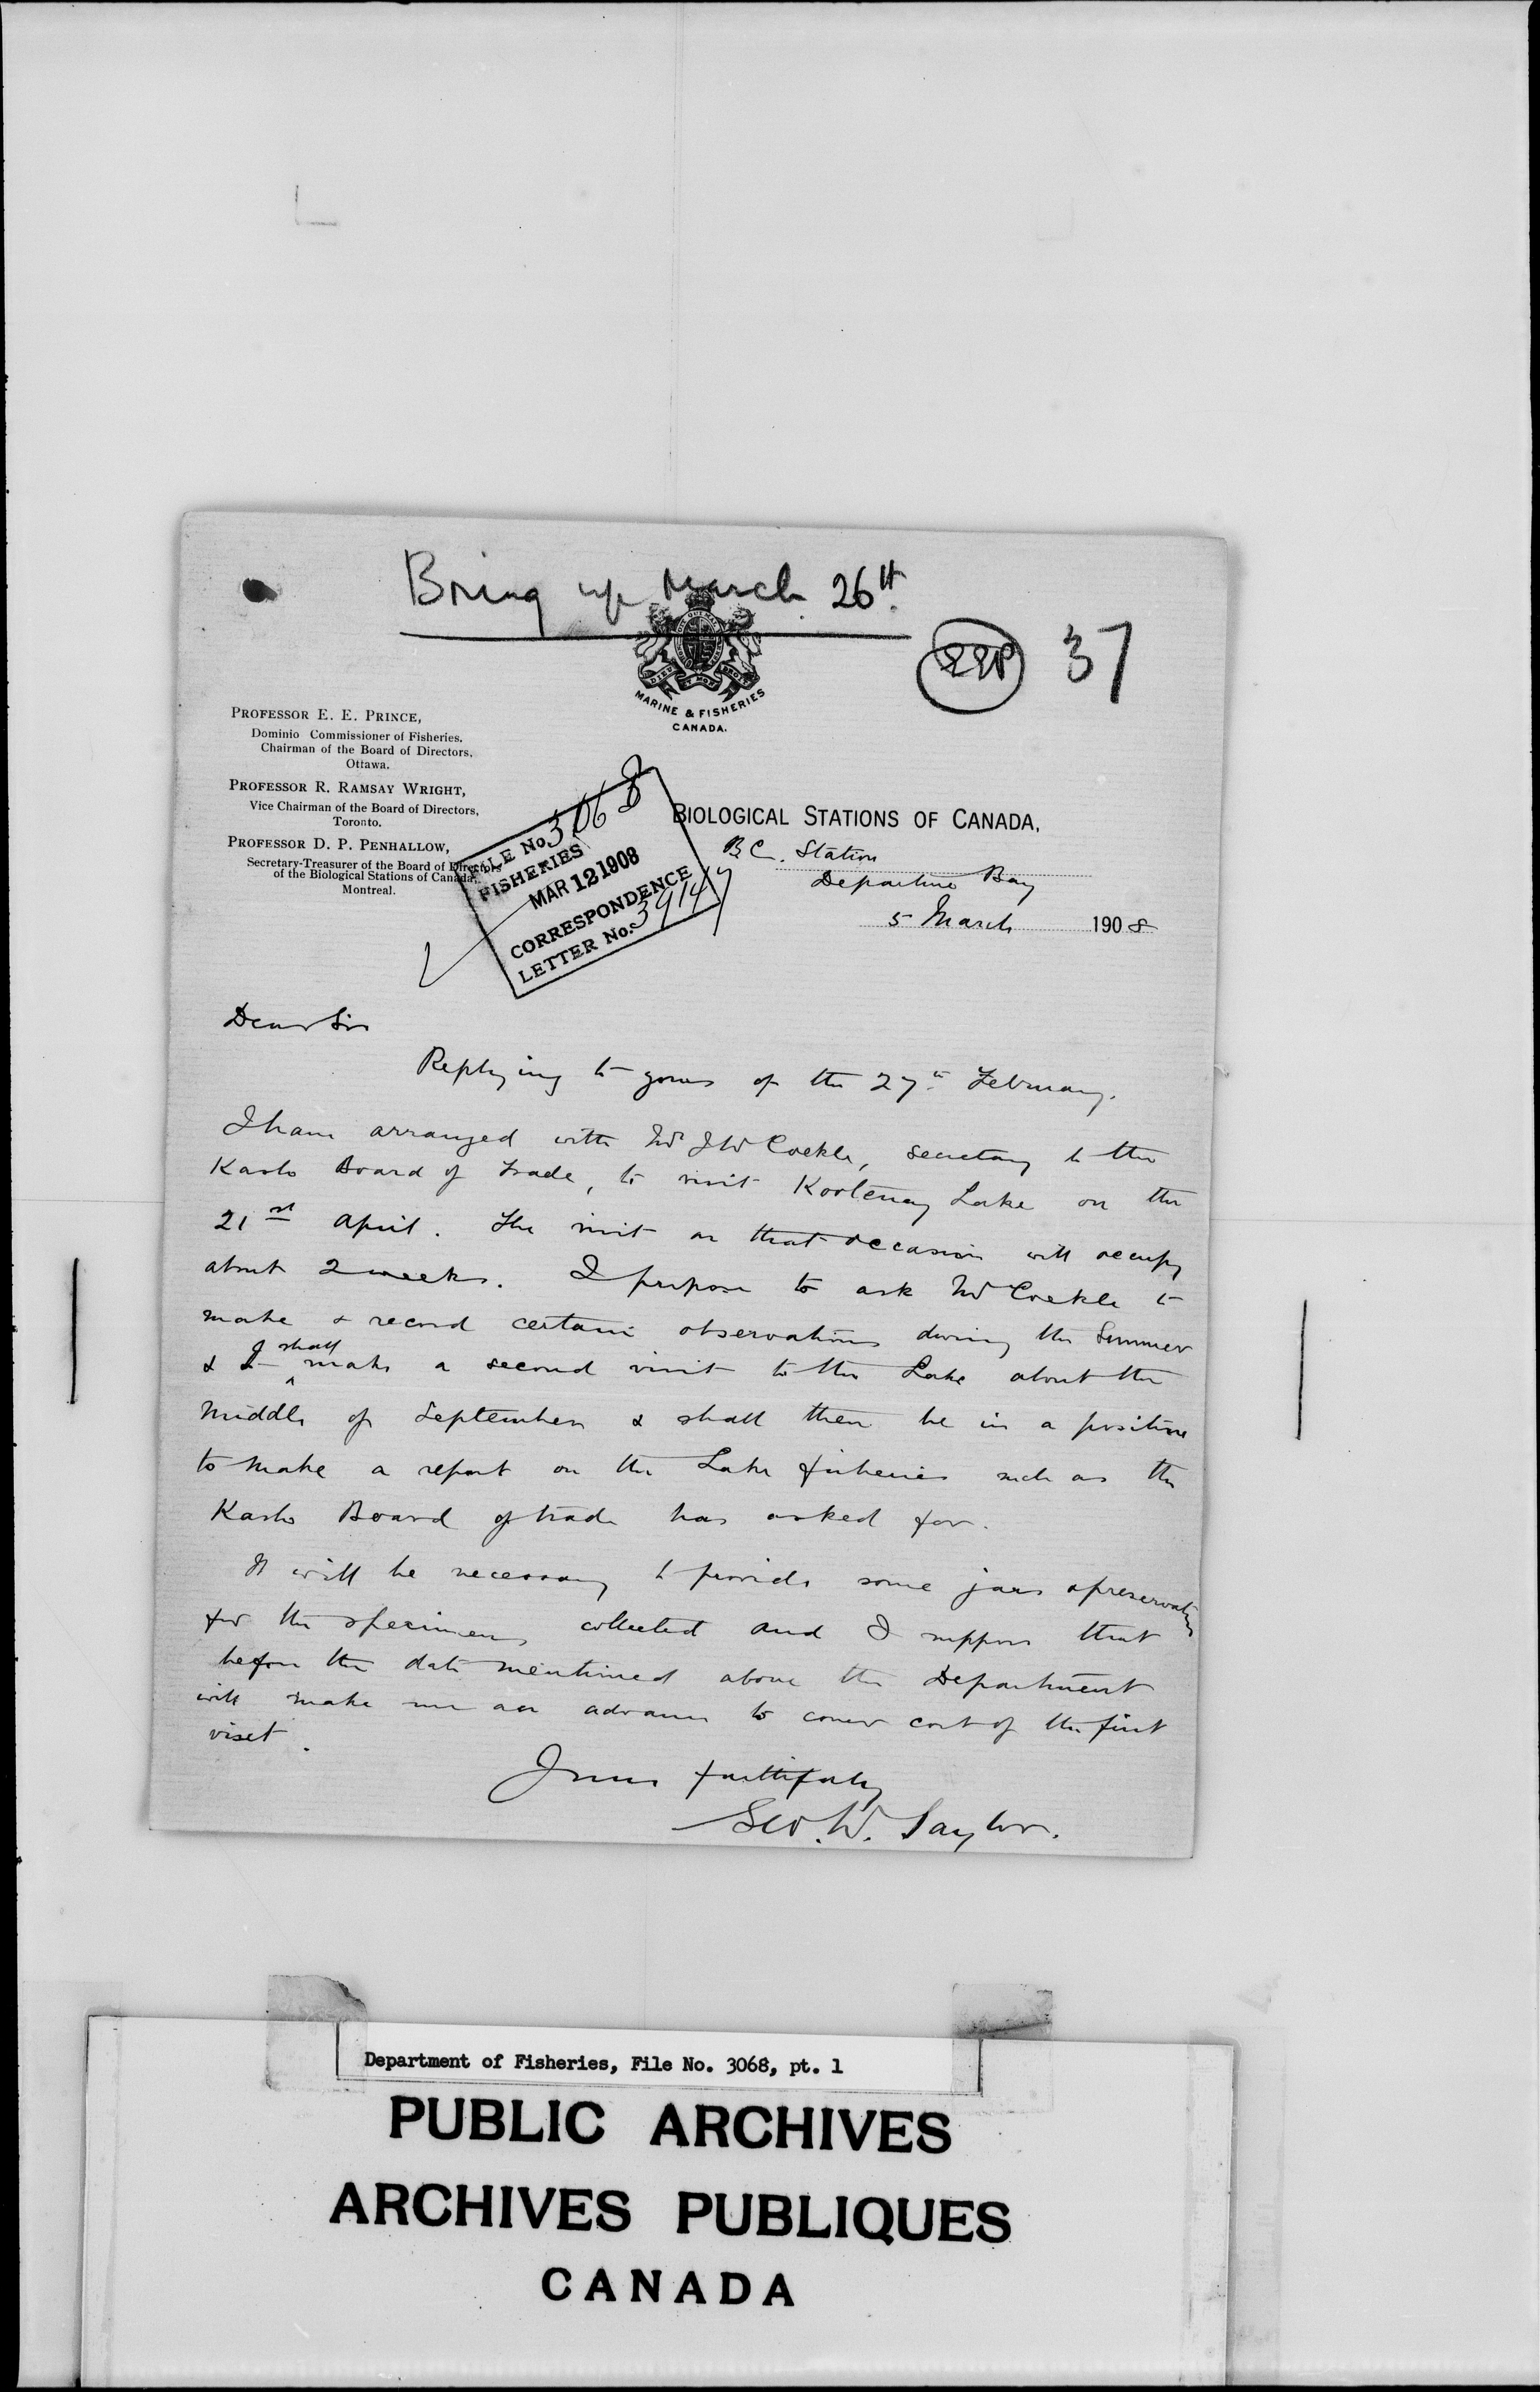 Bring up March 26th.
37
MARINE & FISHERIES
CANADA.
PROFESSOR E. E. PRINCE,
Dominio Commissioner of Fisheries.
Chairman of the Board of Directors,
Ottawa.
PROFESSOR R. RAMSAY WRIGHT,
Vice Chairman of the Board of Directors,
Toronto.
PROFESSOR D. P. PENHALLOW,
Secretary-Treasurer of the Board of Directors
of the Biological Stations of Canada,
Montreal.
FILE No. 3068
FISHERIES
MAR 12 1908
CORRESPONDENCE
LETTER No. 39147
BIOLOGICAL STATIONS OF CANADA,
B.C. Station
Departure Bay
5 March 1908
Dear Sir
Replying to yours of the 27th February.
I have arranged with Mr J W Cockle, secretary to the
Kaslo Board of Trade, to visit Kootenay Lake on the
21st April. The visit on that occasion will occupy
about 2 weeks. I propose to ask Mr Cockle to
make & record certain observations during the Summer
& I shall make a second visit to the Lake about the
middle of September & shall then be in a position
to make a report on the Lake fisheries such as the
Kaslo Board of trade has asked for.
It will be necessary to provide some jars & preservatives
for the specimens collected and I suppose that
before the date mentioned above the Department
will make me an advance to cover cost of the first
viset.
Yours faithfully
Geo. W. Taylor.
Department of Fisheries, File No. 3068, pt. 1
PUBLIC ARCHIVES
ARCHIVES PUBLIQUES
CANADA